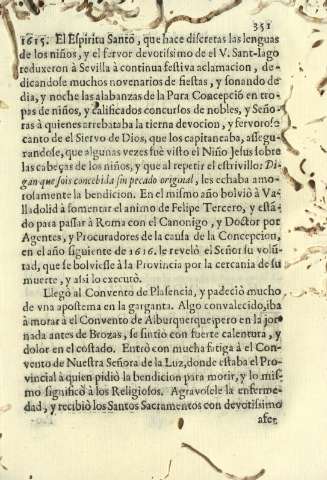 351
1615. El Espiritu Santo, que hace discretas las lenguas
de los niños, y el fervor devotissimo de el V. Sant-Iago
reduxeron à Sevilla à continua festiva aclamacion, de-
dicandose muchos novenarios de fiestas, y sonando de
dia, y noche las alabanzas de la Pura Concepció en tro-
pas de niños, y calificados concursos de nobles, y Seño-
ras à quienes arrebataba la tierna devocion, y fervoroso
canto de el Siervo de Dios, que los capitaneaba, assegu-
randose, que algunas vezes fuè visto el Niño Jesus sobre
las cabeças de los niños, y que al repetir el estrivillo: Di-
gan que sois concebida sin pecado original, les echaba amo-
rosamente la bendicion. En el mismo año bolviò à Va-
lladolid à fomentar el animo de Felipe Tercero, y està-
do para passar à Roma con el Canonigo, y Doctor por
Agentes, y Procuradores de la causa de la Concepcion,
en el año siguiente de 1616. le revelò el Señor su volũ-
tad, que se bolviesse à la Provincia por la cercania de su
muerte, y assi lo executò.
Llegò al Convento de Plasencia, y padeciò mucho
de vna apostema en la garganta. Algo convalecido, iba
à morar à el Convento de Alburquerque; pero en la jor-
nada antes de Brozas, se sintiò con fuerte calentura, y
dolor en el costado. Entrò con mucha fatiga à el Con-
vento de Nuestra Señora de la Luz, donde estaba el Pro-
vincial à quien pidiò la bendicion para morir, y lo mis-
mo significò à los Religiosos. Agravosele la enferme-
dad, y recibiò los Santos Sacramentos con devotissimo
afec-